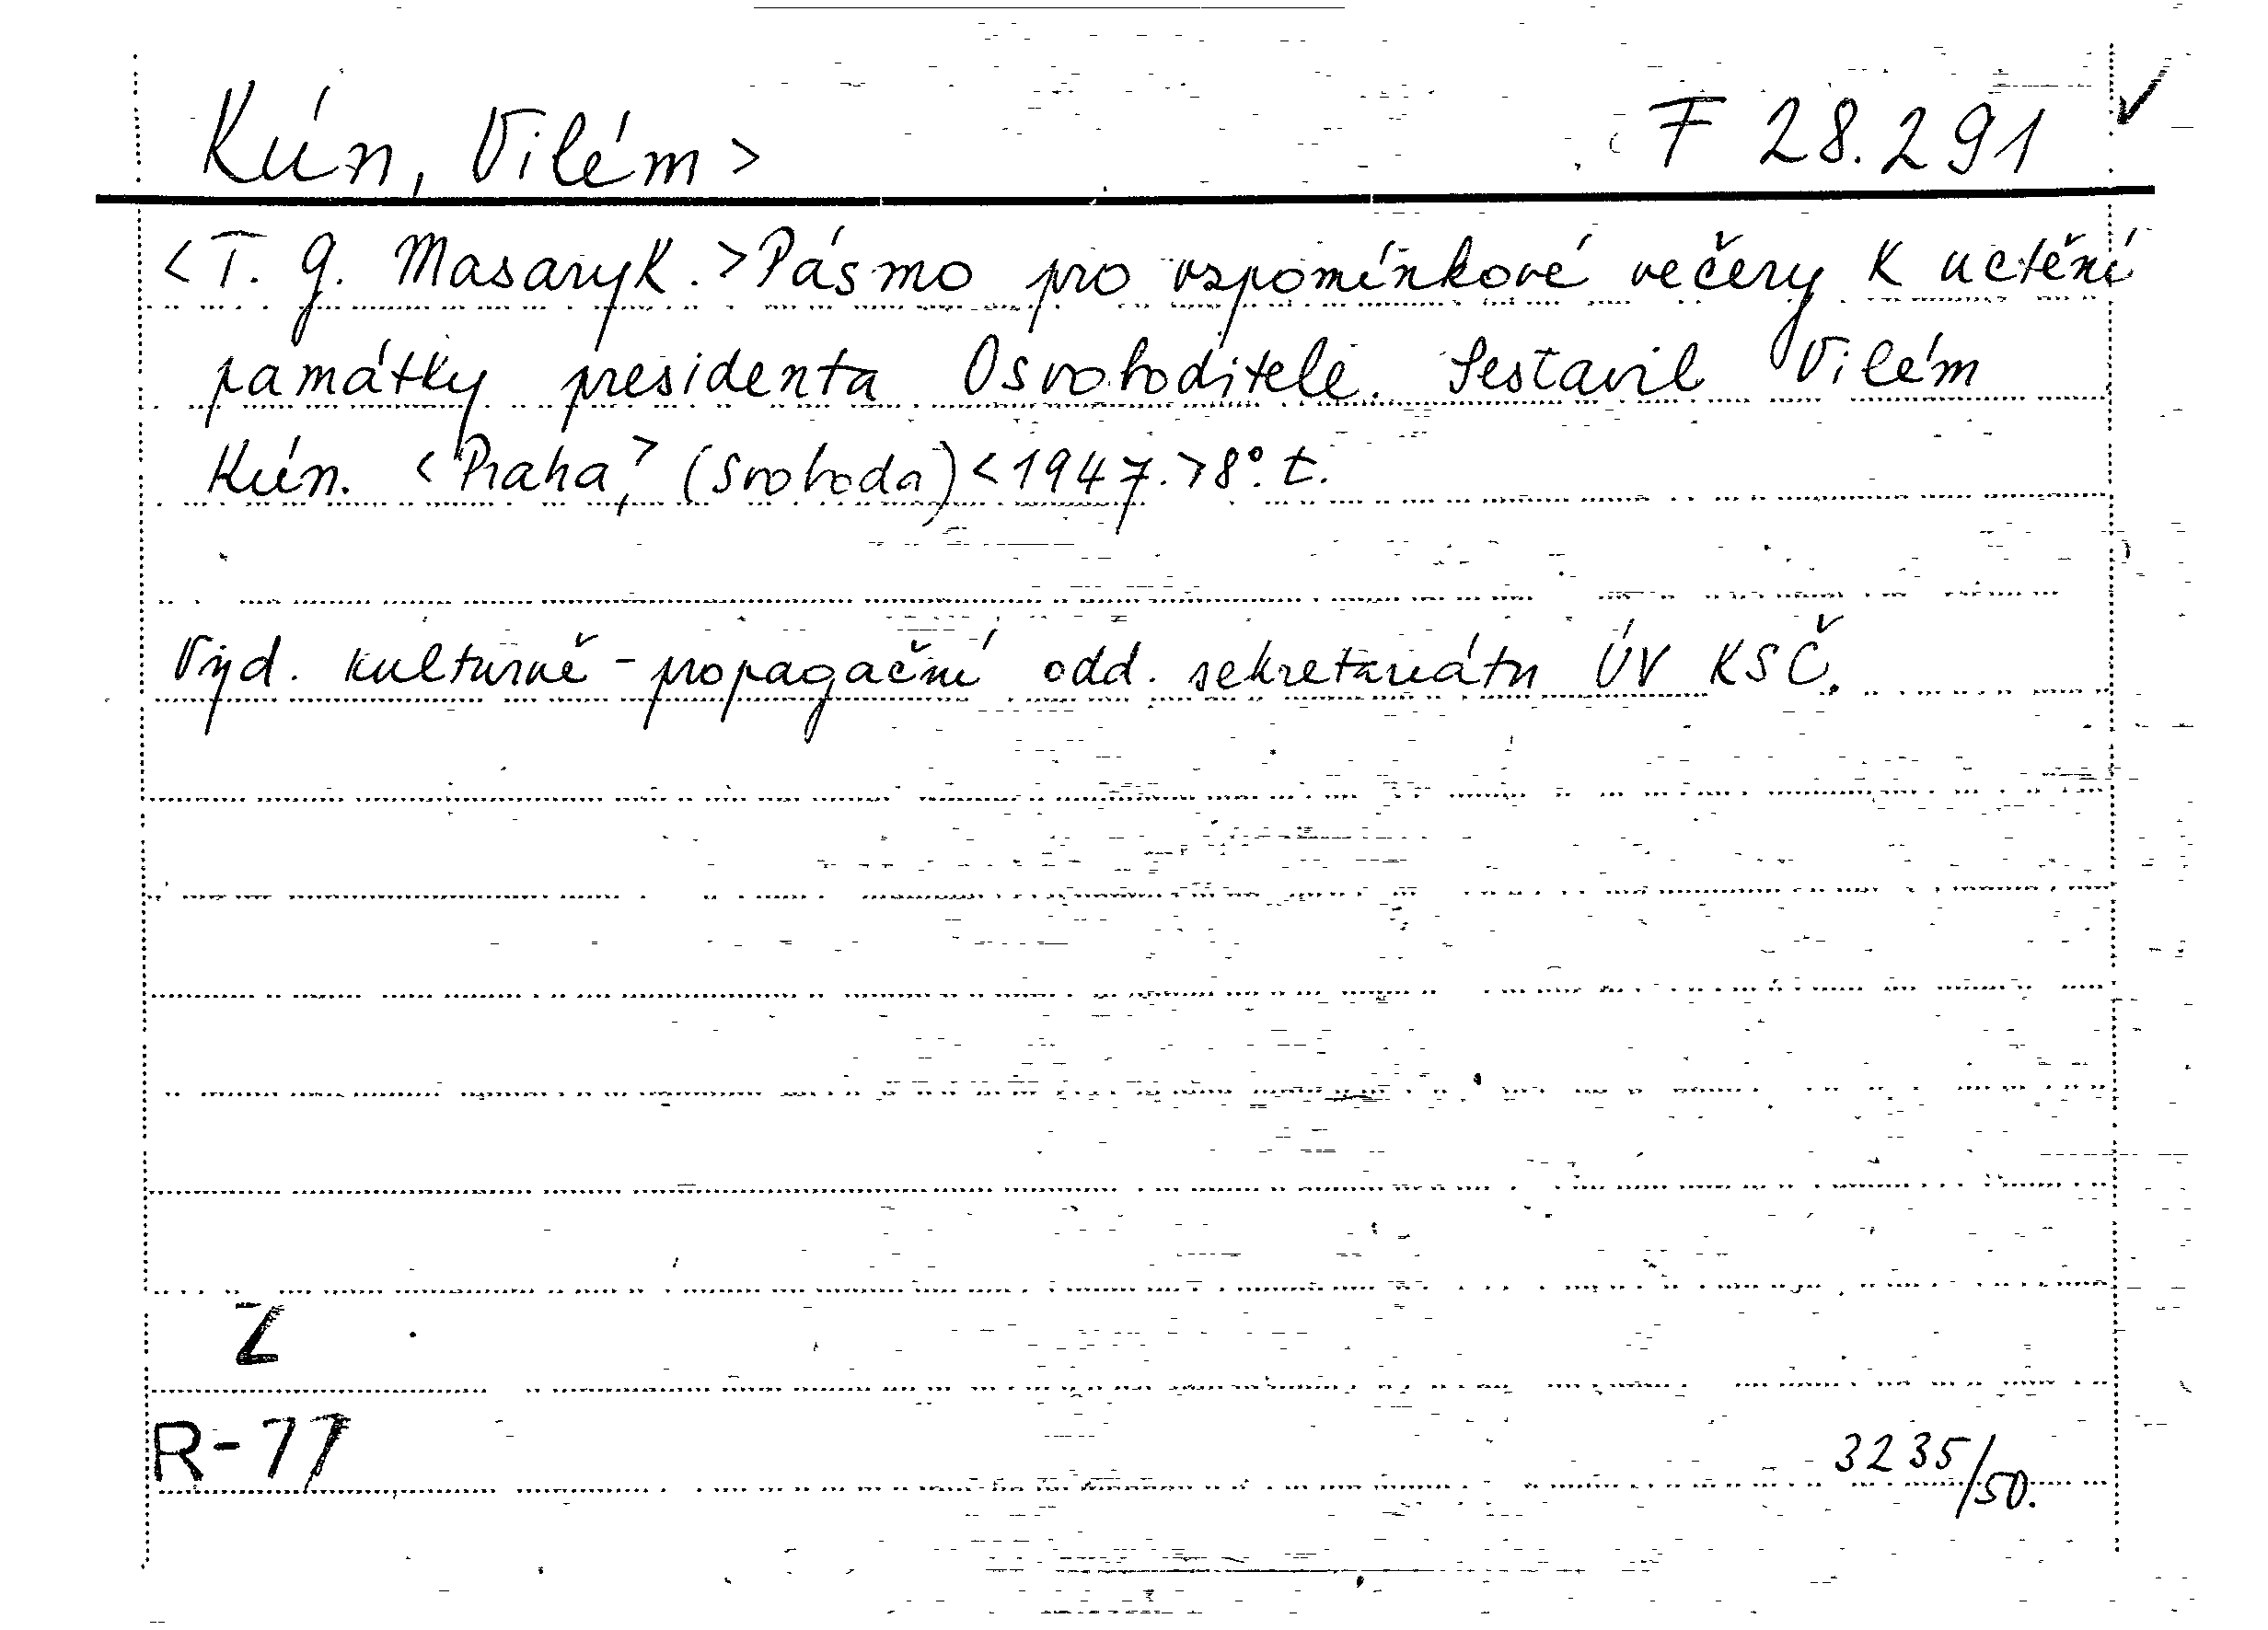 Kún, Vilém > F 28.291 ✓
<T. G. Masaryk.> Pásmo pro vzpomínkové večery k uctění
památky presidenta Osvoboditele. Sestavil Vilém
Kún. <Praha,> (Svoboda) <1947.> 8°. t.
Vyd. kulturně-propagační odd. sekretariátu ÚV KSČ.
Z
R-77
3235/50.